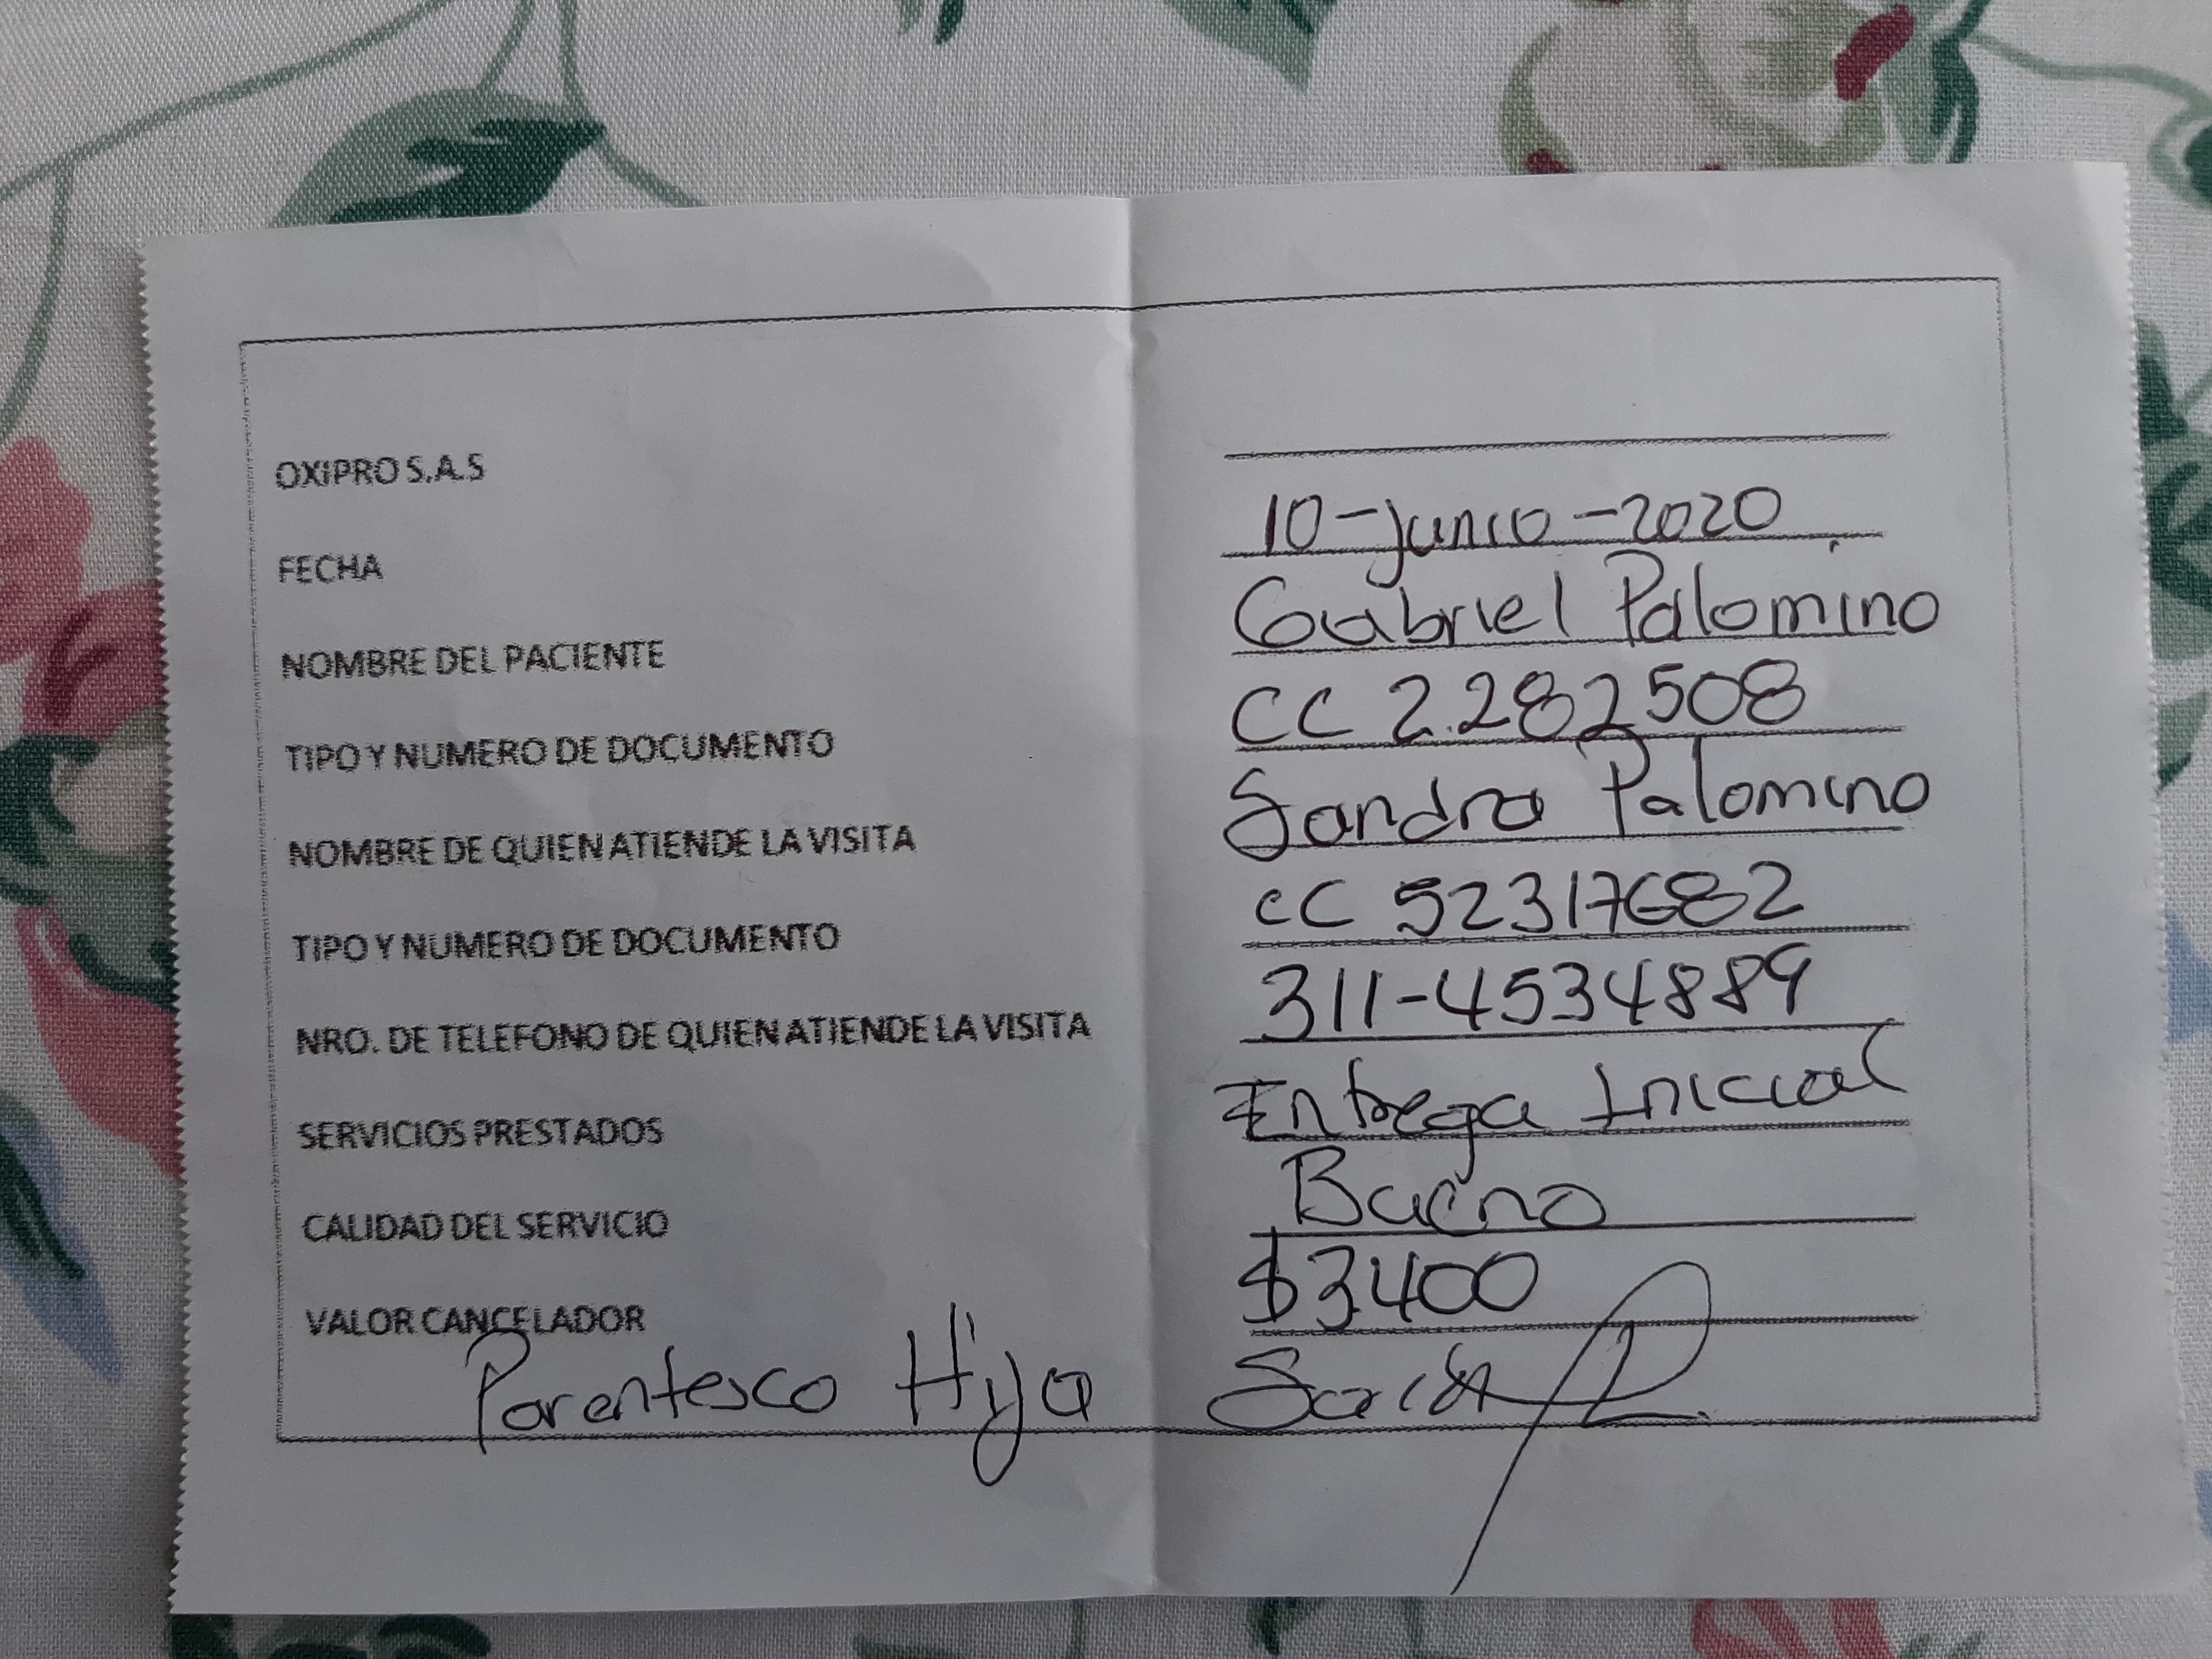 OXIPRO S.A.S
FECHA 10-junio-2020
NOMBRE DEL PACIENTE Gabriel Palomino
TIPO Y NUMERO DE DOCUMENTO CC 2.282508
NOMBRE DE QUIEN ATIENDE LA VISITA Sandra Palomino
TIPO Y NUMERO DE DOCUMENTO CC 52317682
NRO. DE TELEFONO DE QUIEN ATIENDE LA VISITA 311-4534889
SERVICIOS PRESTADOS Entrega Inicial
CALIDAD DEL SERVICIO Bueno
VALOR CANCELADOR $3.400
Parentesco Hija